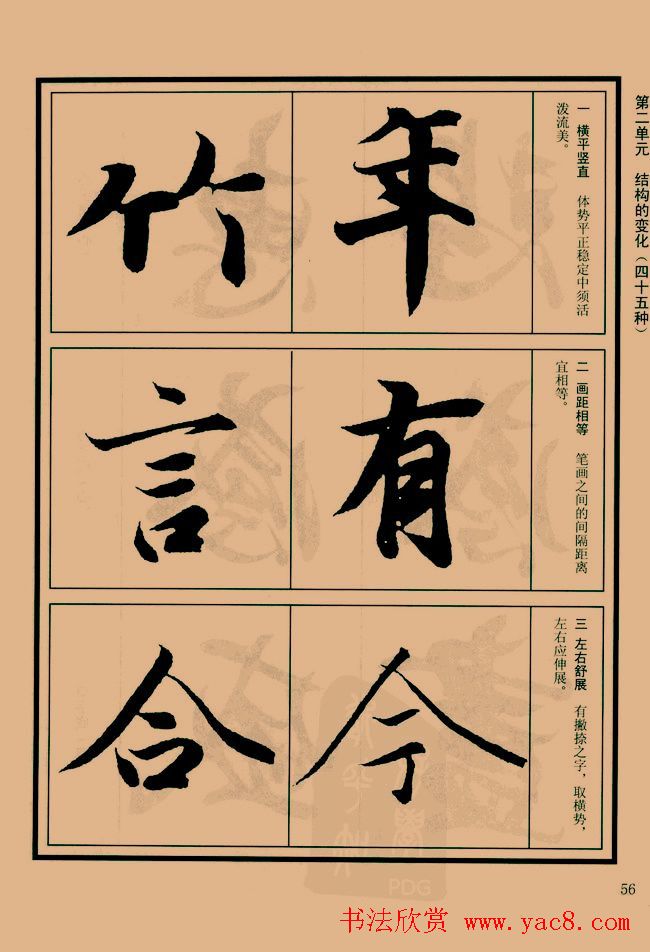 第二单元　结构的变化（四十五种）
一　横平竖直　体势平正稳定中须活
泼流美。
年
竹
二　画距相等　笔画之间的间隔距离
宜相等。
有
言
三　左右舒展　有撇捺之字，取横势，
左右应伸展。
今
合
PDG
56
书法欣赏 www.yac8.com